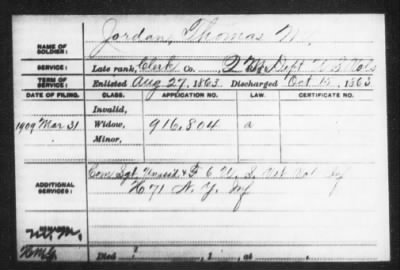 Jordan, Thomas M.
NAME OF SOLDIER:
SERVICE: Late rank, Clerk Co. Q M Dept U.S. Vols
TERM OF SERVICE: Enlisted Aug 27, 1863. Discharged Oct 15, 1863
DATE OF FILING. CLASS. APPLICATION NO. LAW. CERTIFICATE NO.
Invalid,
1909 Mar 31 Widow, 916,804 a
Minor,
ADDITIONAL SERVICES: Com Sgt, Unassd & F 6 U. S. Vet Vol Inf
H 71 N. Y. Inf
Died , 1 , at ,